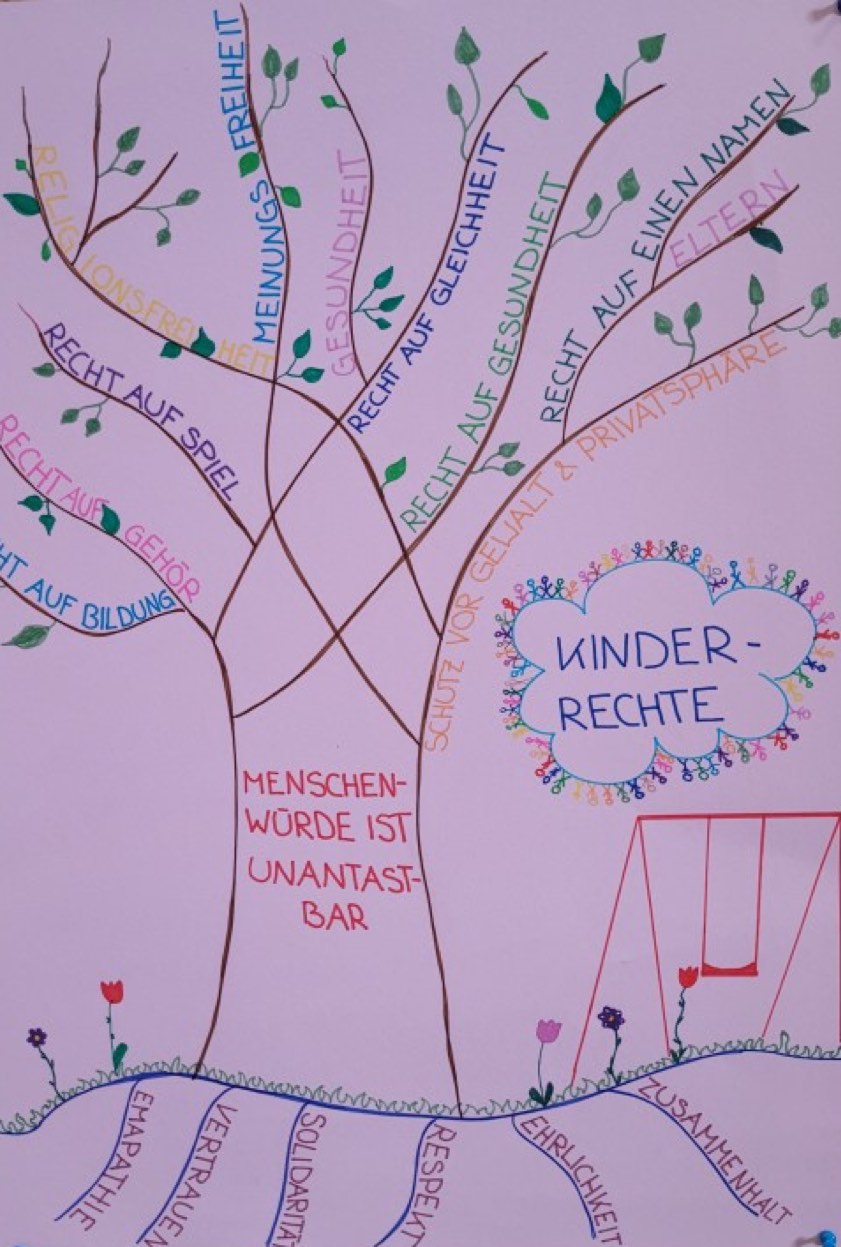 RELIGIONSFREIHEIT
MEINUNGSFREIHEIT
GESUNDHEIT
RECHT AUF GLEICHHEIT
RECHT AUF GESUNDHEIT
RECHT AUF EINEN NAMEN
ELTERN
SCHUTZ VOR GEWALT & PRIVATSPHÄRE
RECHT AUF SPIEL
RECHT AUF GEHÖR
HT AUF BILDUNG
KINDER-
RECHTE
MENSCHEN-
WÜRDE IST
UNANTAST-
BAR
EMAPATHIE
VERTRAUEN
SOLIDARITÄ
RESPEKT
EHRLICHKEIT
ZUSAMMENHALT